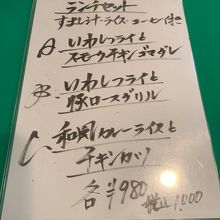 ランチセット
すまし汁・ライス・コーヒー付
A いわしフライと
スモークチキンゴマダレ
B いわしフライと
豚ロースグリル
C 和風カレーライスと
チキンカツ
各 ¥980
税込1,000